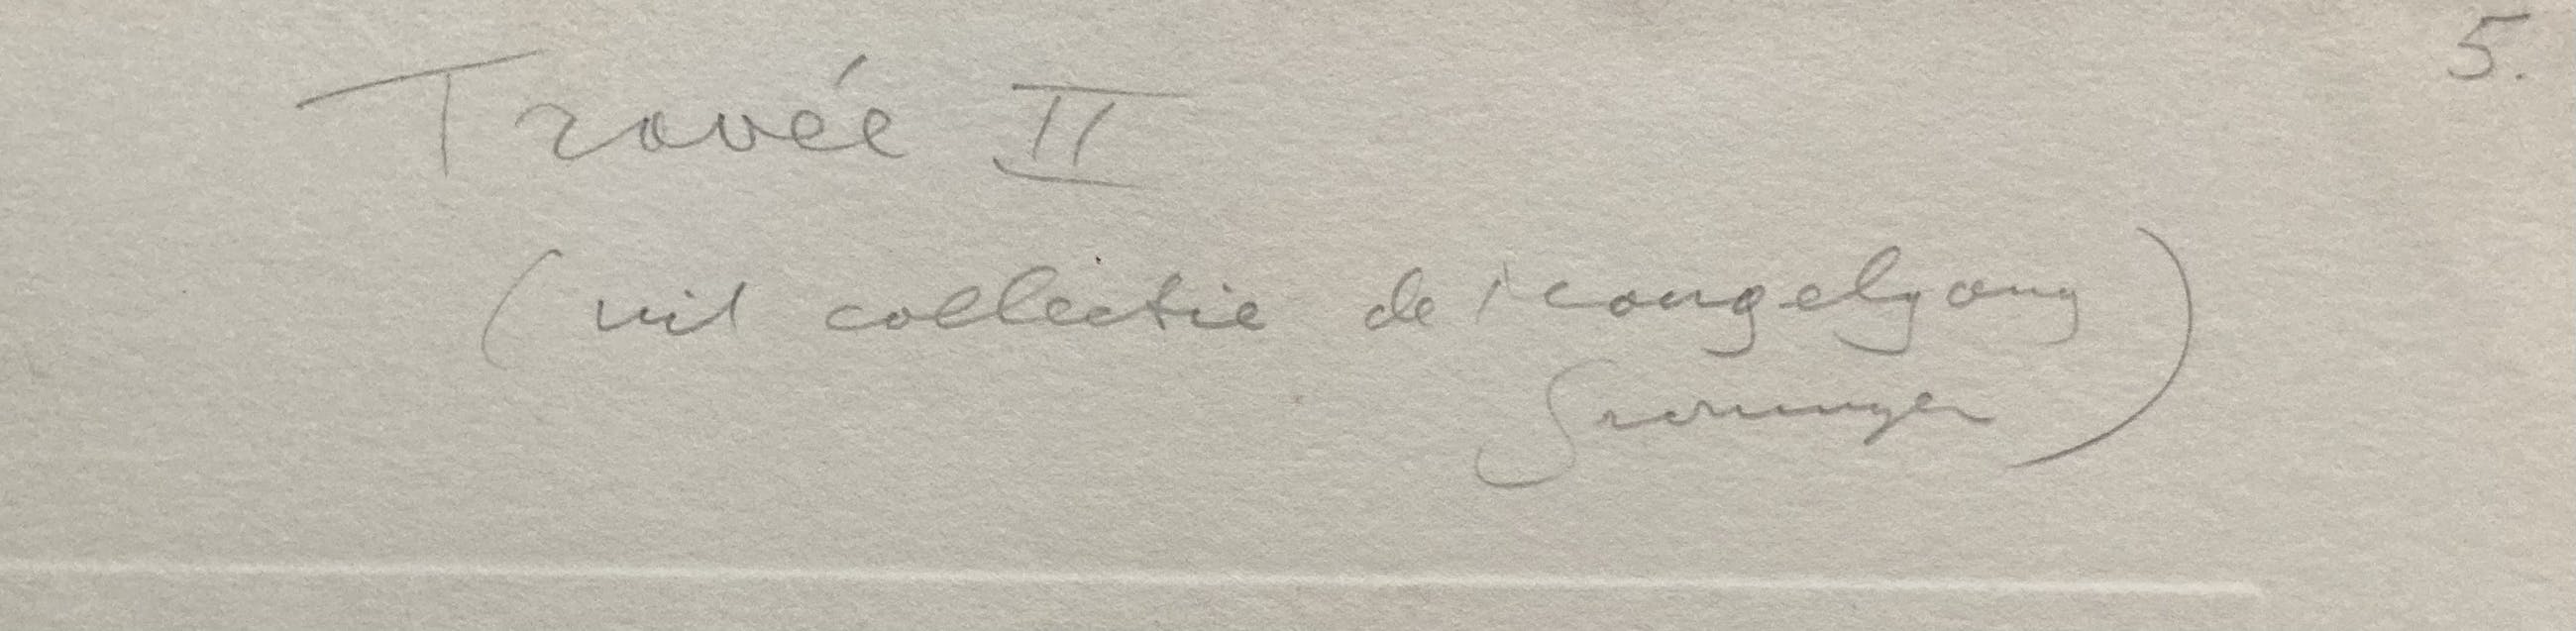 5.
Travée II
(uit collectie de congelgang
Groningen)